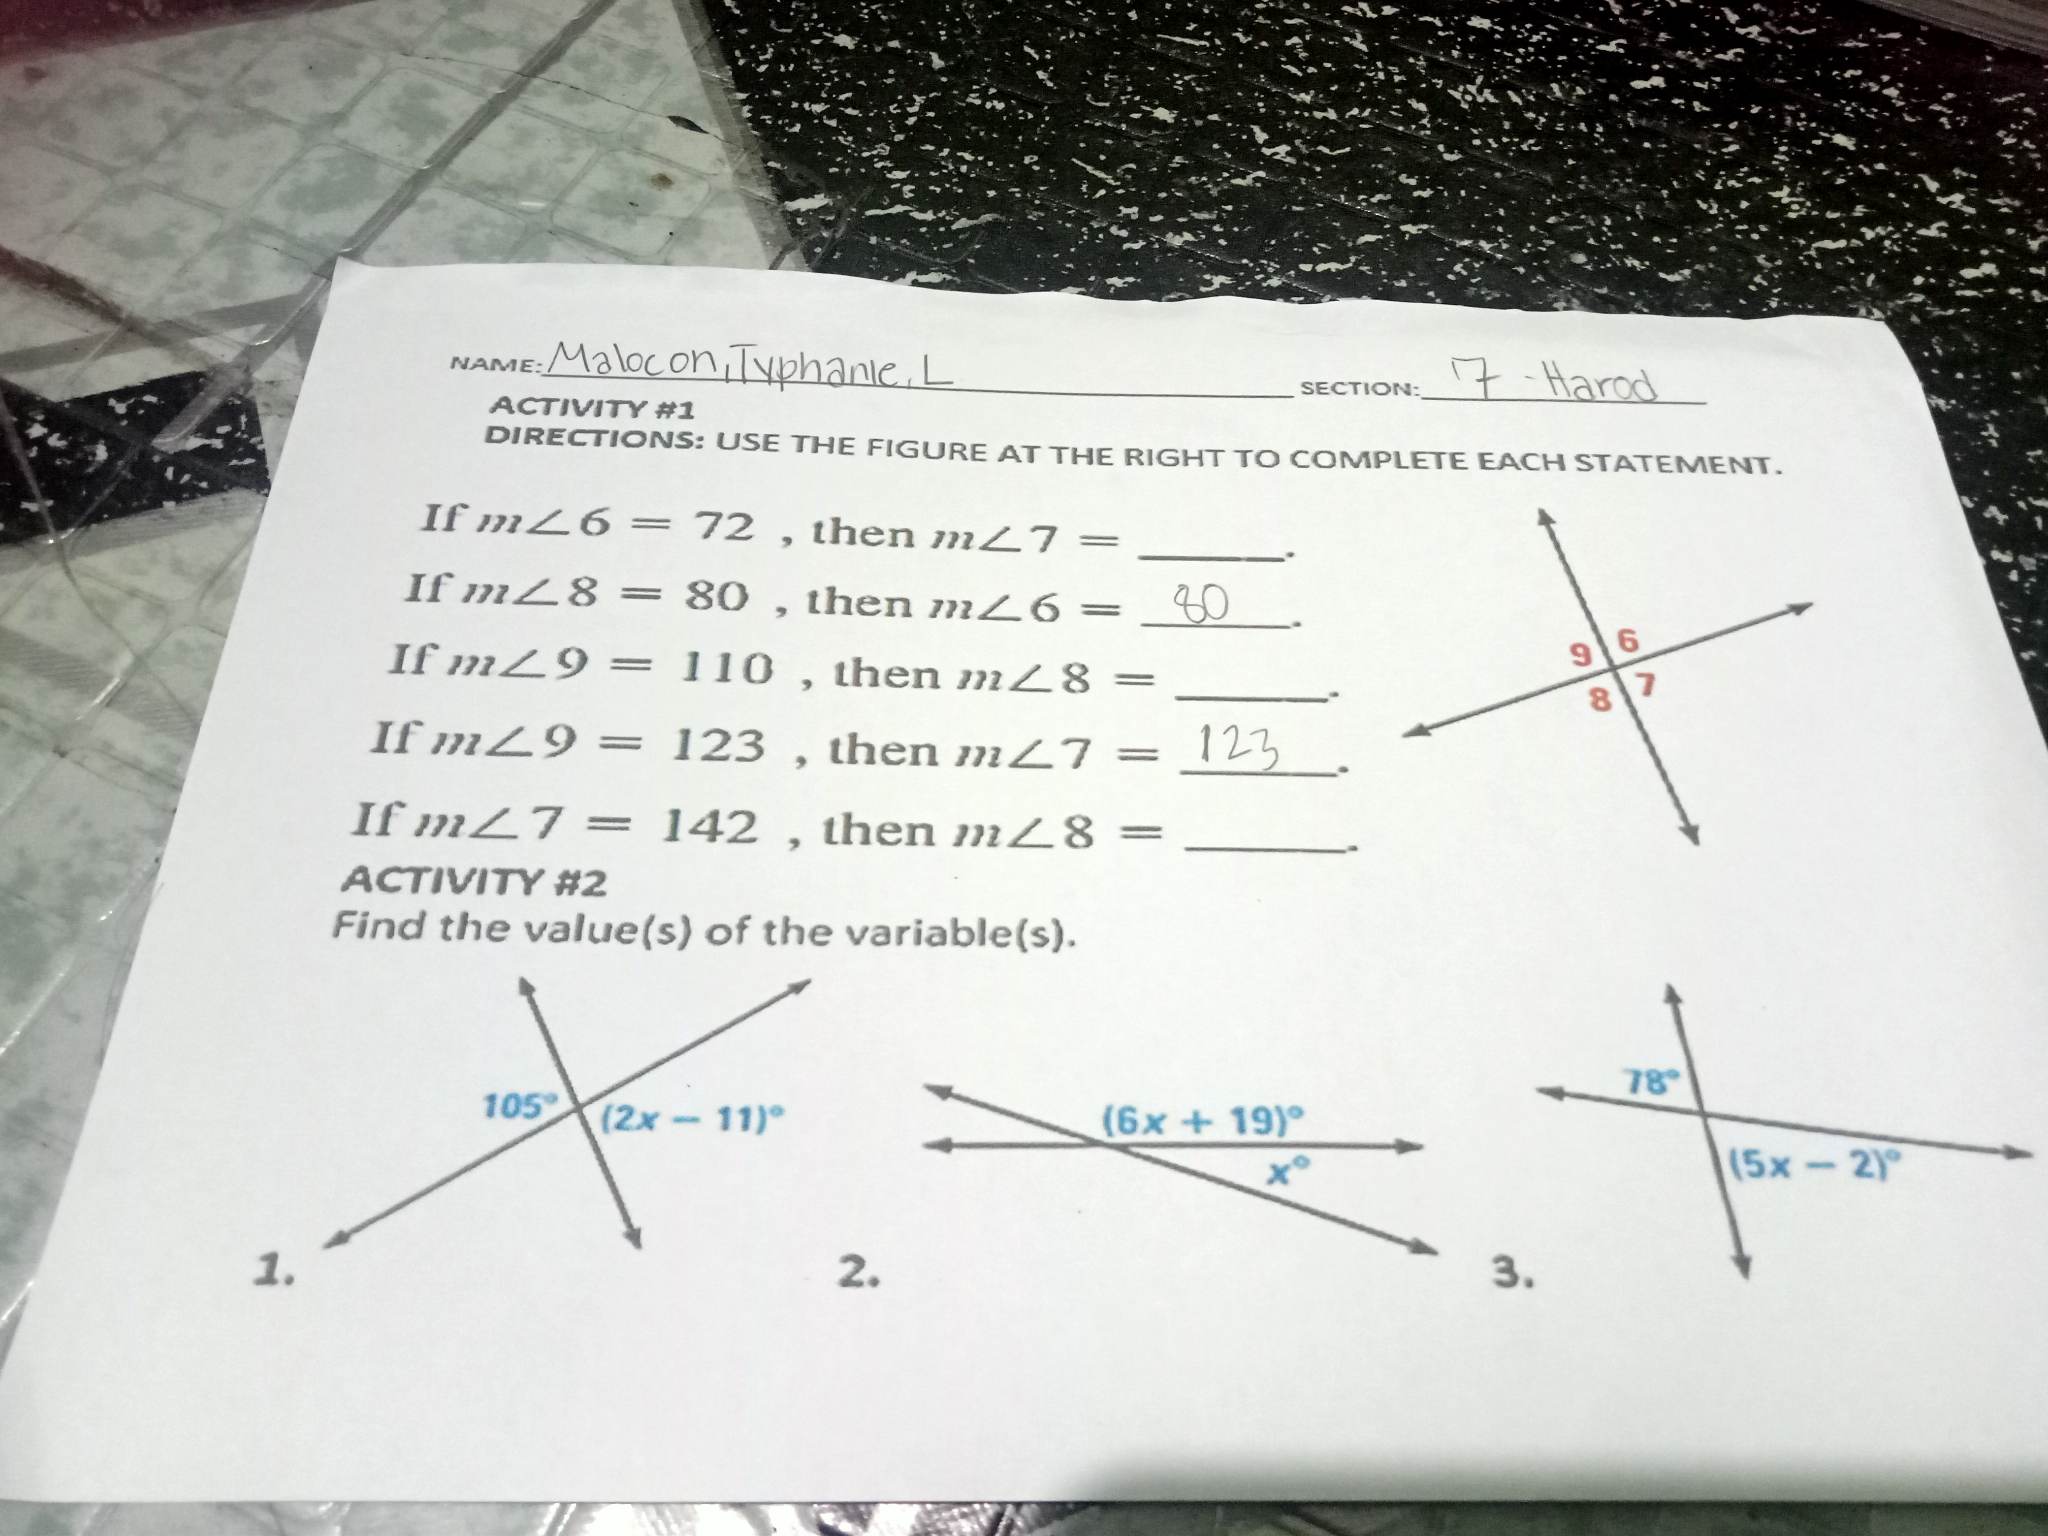 NAME: Malocon, Typhanie, L SECTION: 7 - Harod
ACTIVITY #1
DIRECTIONS: USE THE FIGURE AT THE RIGHT TO COMPLETE EACH STATEMENT.
If m∠6 = 72 , then m∠7 = ______.
If m∠8 = 80 , then m∠6 = 80.
If m∠9 = 110 , then m∠8 = ______.
If m∠9 = 123 , then m∠7 = 123.
If m∠7 = 142 , then m∠8 = ______.
9 6
8 7
ACTIVITY #2
Find the value(s) of the variable(s).
105° (2x − 11)°
1.
(6x + 19)°
x°
2.
78°
(5x − 2)°
3.